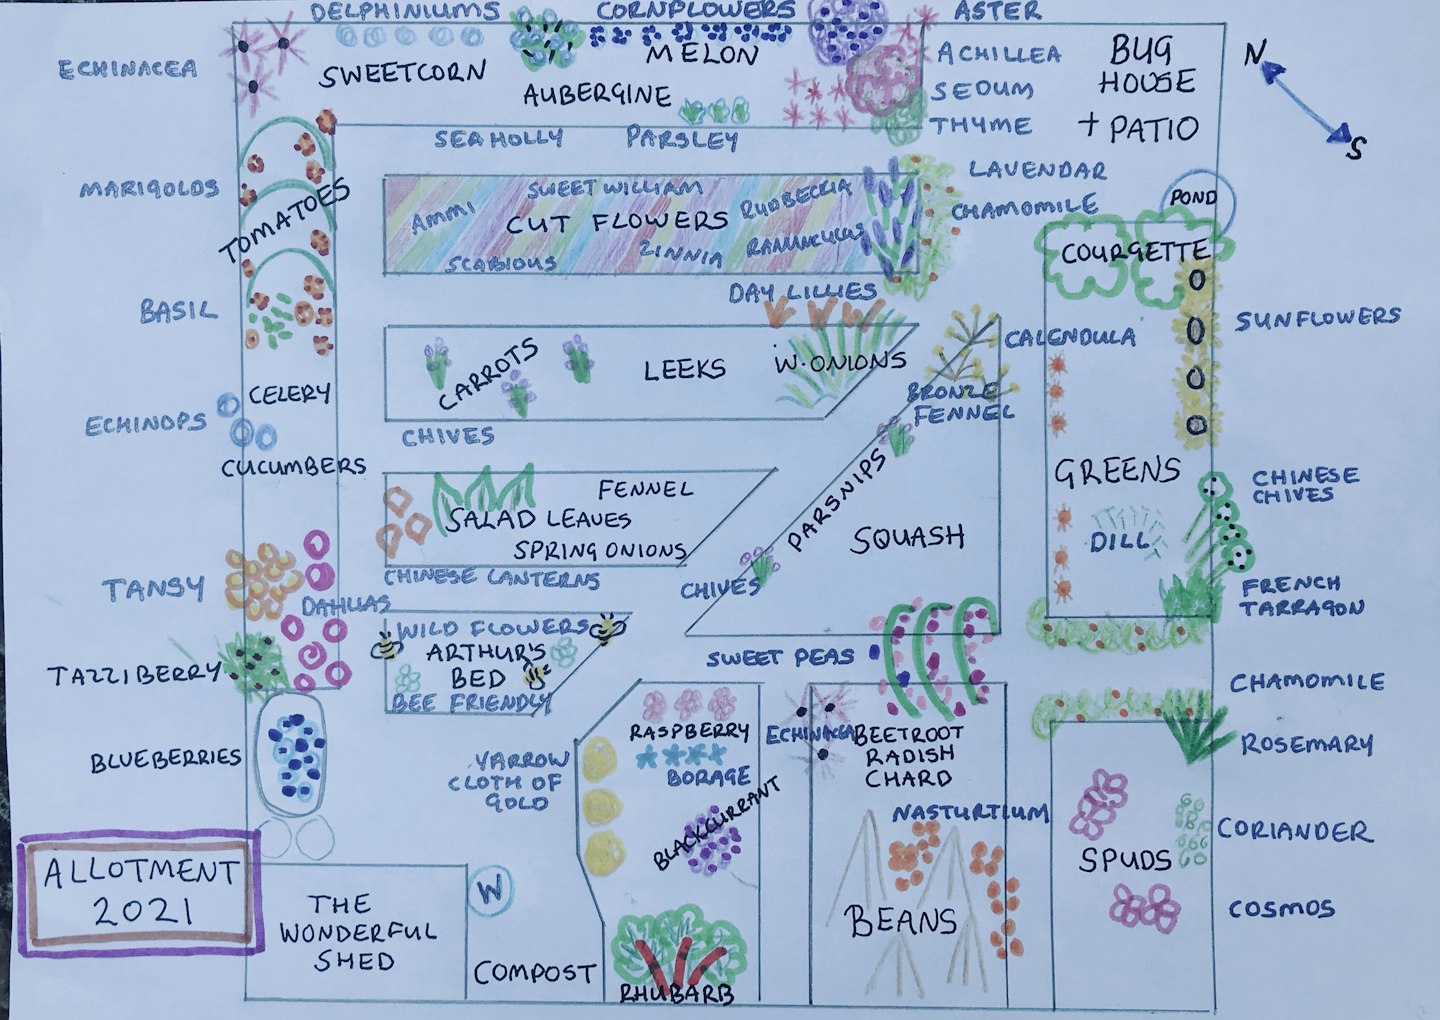 DELPHINIUMS
CORNFLOWERS
ASTER
ECHINACEA
SWEETCORN
MELON
AUBERGINE
ACHILLEA
SEDUM
THYME
BUG
HOUSE
+ PATIO
N
S
SEA HOLLY
PARSLEY
MARIGOLDS
TOMATOES
SWEET WILLIAM
AMMI
CUT FLOWERS
RUDBECKIA
RANANCULUS
ZINNIA
SCABIOUS
LAVENDAR
CHAMOMILE
POND
COURGETTE
BASIL
DAY LILLIES
CARROTS
LEEKS
W.ONIONS
CALENDULA
SUNFLOWERS
BRONZE
FENNEL
CELERY
ECHINOPS
CHIVES
CUCUMBERS
FENNEL
SALAD LEAVES
SPRING ONIONS
PARSNIPS
SQUASH
GREENS
DILL
CHINESE
CHIVES
TANSY
CHINESE CANTERNS
CHIVES
FRENCH
TARRAGON
DAHLIAS
WILD FLOWERS
ARTHUR'S
BED
BEE FRIENDLY
SWEET PEAS
TAZZIBERRY
CHAMOMILE
BLUEBERRIES
YARROW
CLOTH OF
GOLD
RASPBERRY
BORAGE
BLACKCURRANT
ECHINACEA
BEETROOT
RADISH
CHARD
ROSEMARY
NASTURTIUM
CORIANDER
SPUDS
BEANS
COSMOS
ALLOTMENT
2021
THE
WONDERFUL
SHED
W
COMPOST
RHUBARB